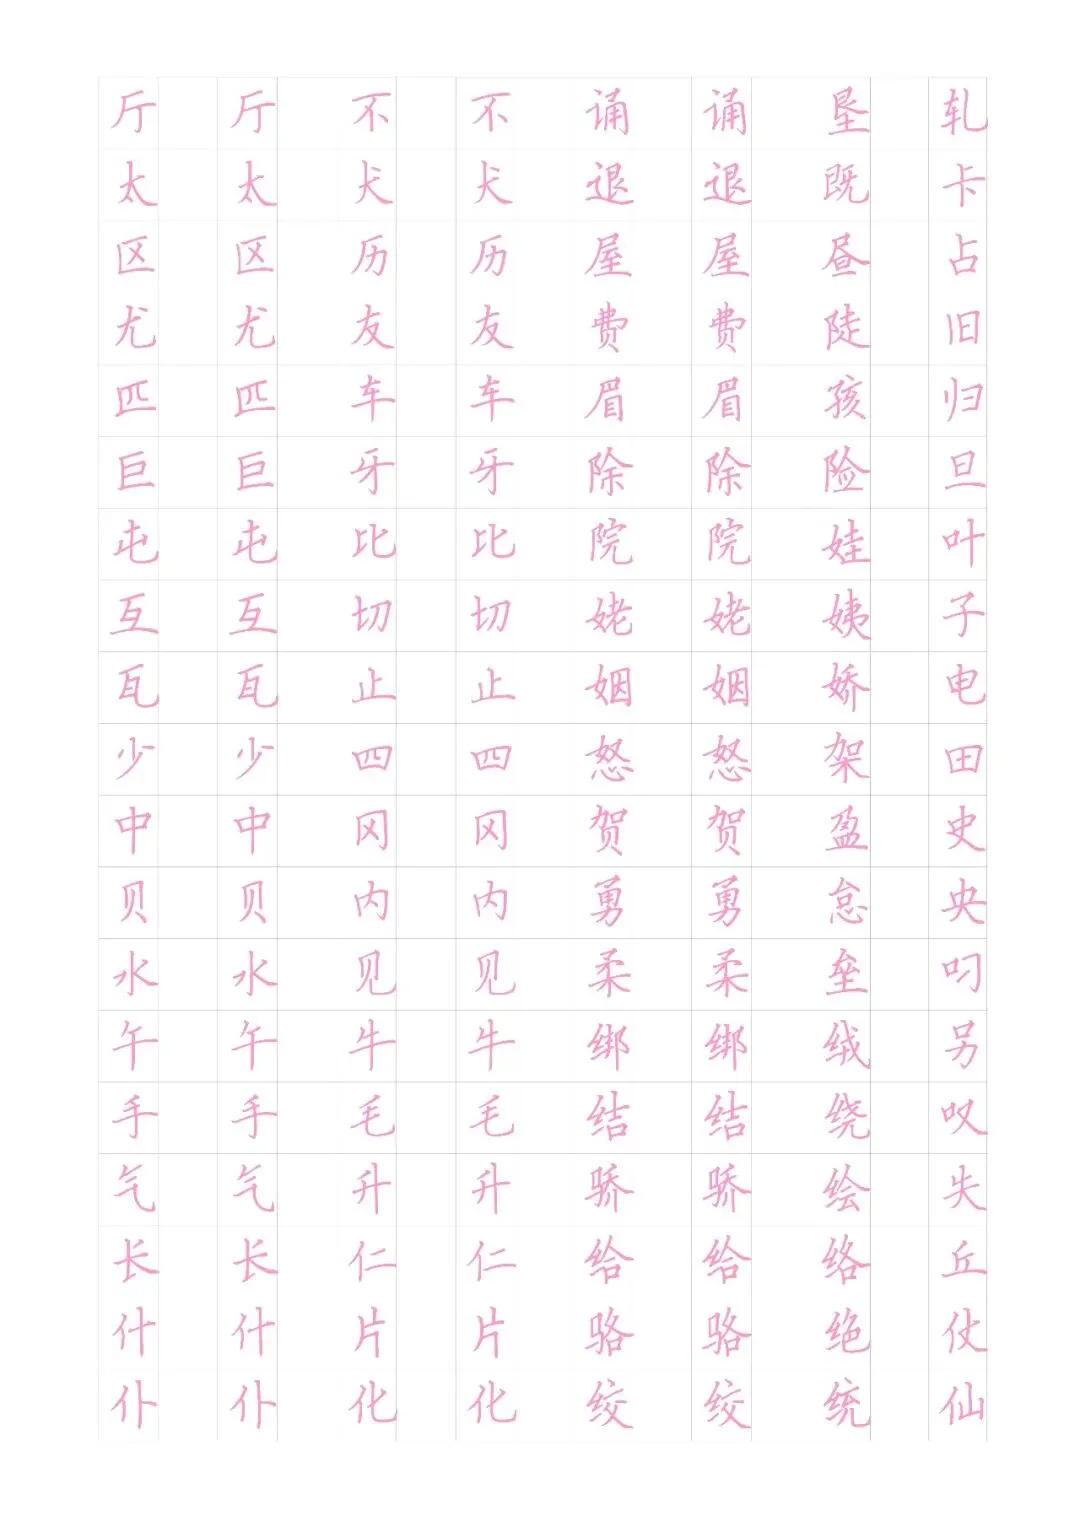 斤 斤 不 不 诵 诵 垦 轧
太 太 犬 犬 退 退 既 卡
区 区 历 历 屋 屋 昼 占
尤 尤 友 友 费 费 陡 旧
匹 匹 车 车 眉 眉 孩 归
巨 巨 牙 牙 除 除 险 旦
屯 屯 比 比 院 院 娃 叶
互 互 切 切 姥 姥 姨 子
瓦 瓦 止 止 姻 姻 娇 电
少 少 四 四 怒 怒 架 田
中 中 冈 冈 贺 贺 盈 史
贝 贝 内 内 勇 勇 怠 央
水 水 见 见 柔 柔 垒 叼
午 午 牛 牛 绑 绑 绒 另
手 手 毛 毛 结 结 绕 叹
气 气 升 升 骄 骄 绘 失
长 长 仁 仁 给 给 络 丘
什 什 片 片 骆 骆 绝 仗
仆 仆 化 化 绞 绞 统 仙